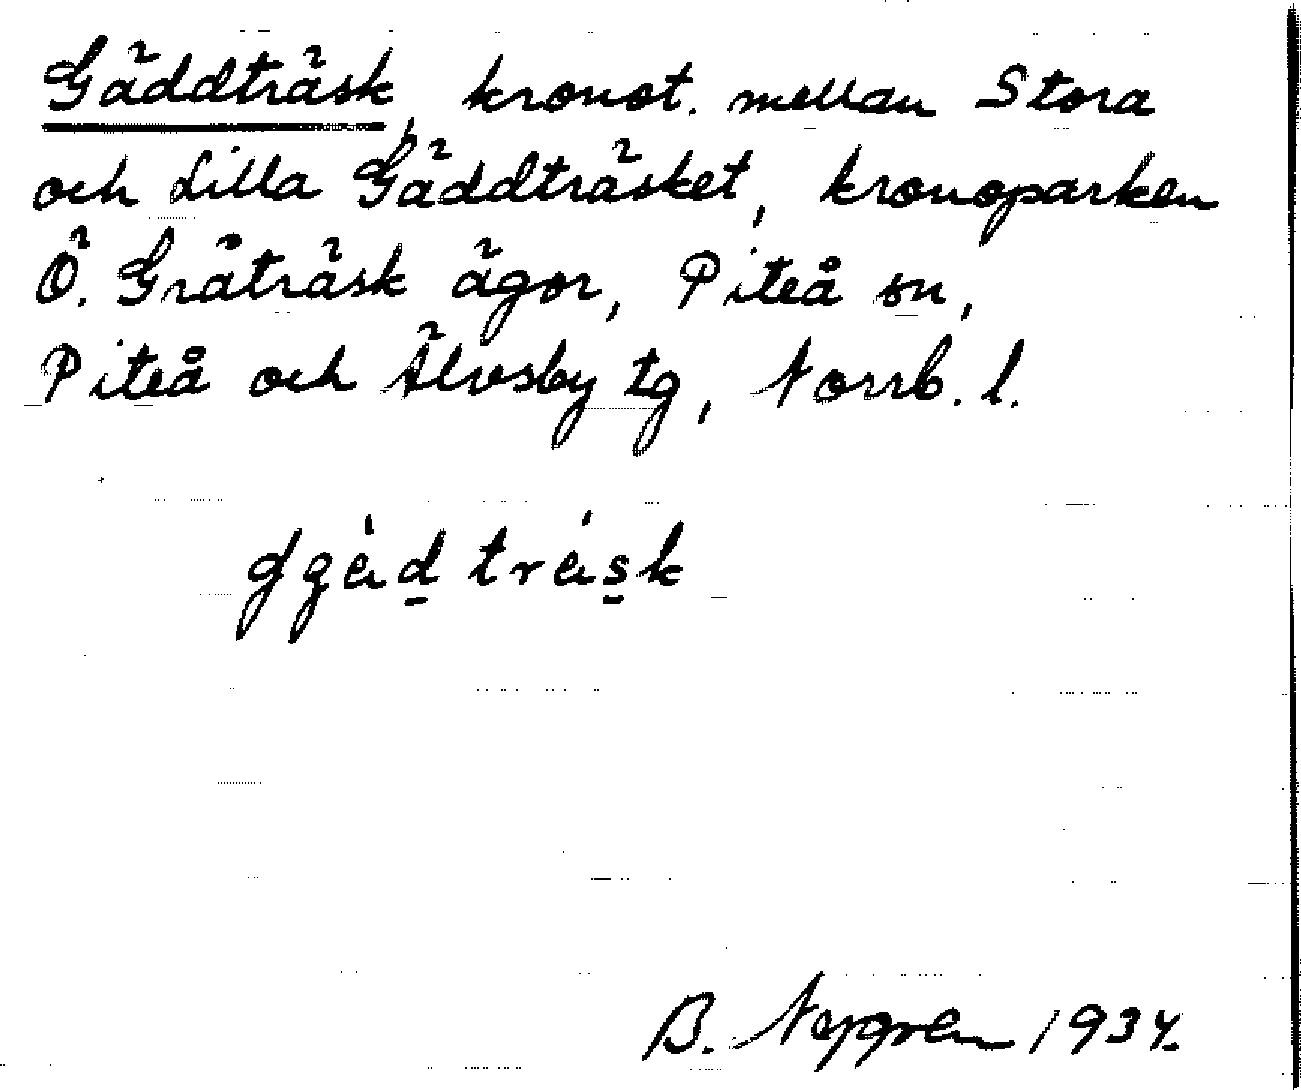 Gäddträsk, kronot. mellan Stora
och Lilla Gäddträsket, kronoparken
Ö. Gråträsk ägor, Piteå sn,
Piteå och Älvsby tg, Norrb. l.
B. Nygren 1934.